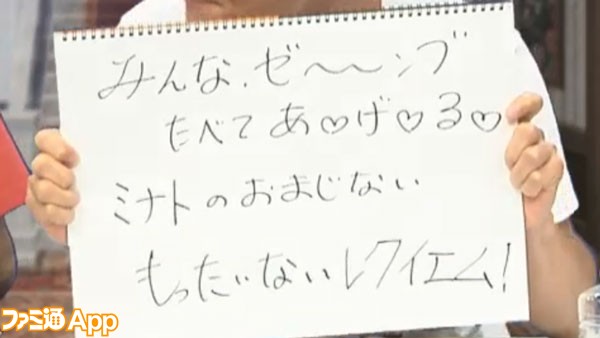 みんな、ゼ〜〜ンブ
たべてあ♡げ♡る♡
ミナトのおまじない
もったいないレクイエム!
ファミ通App